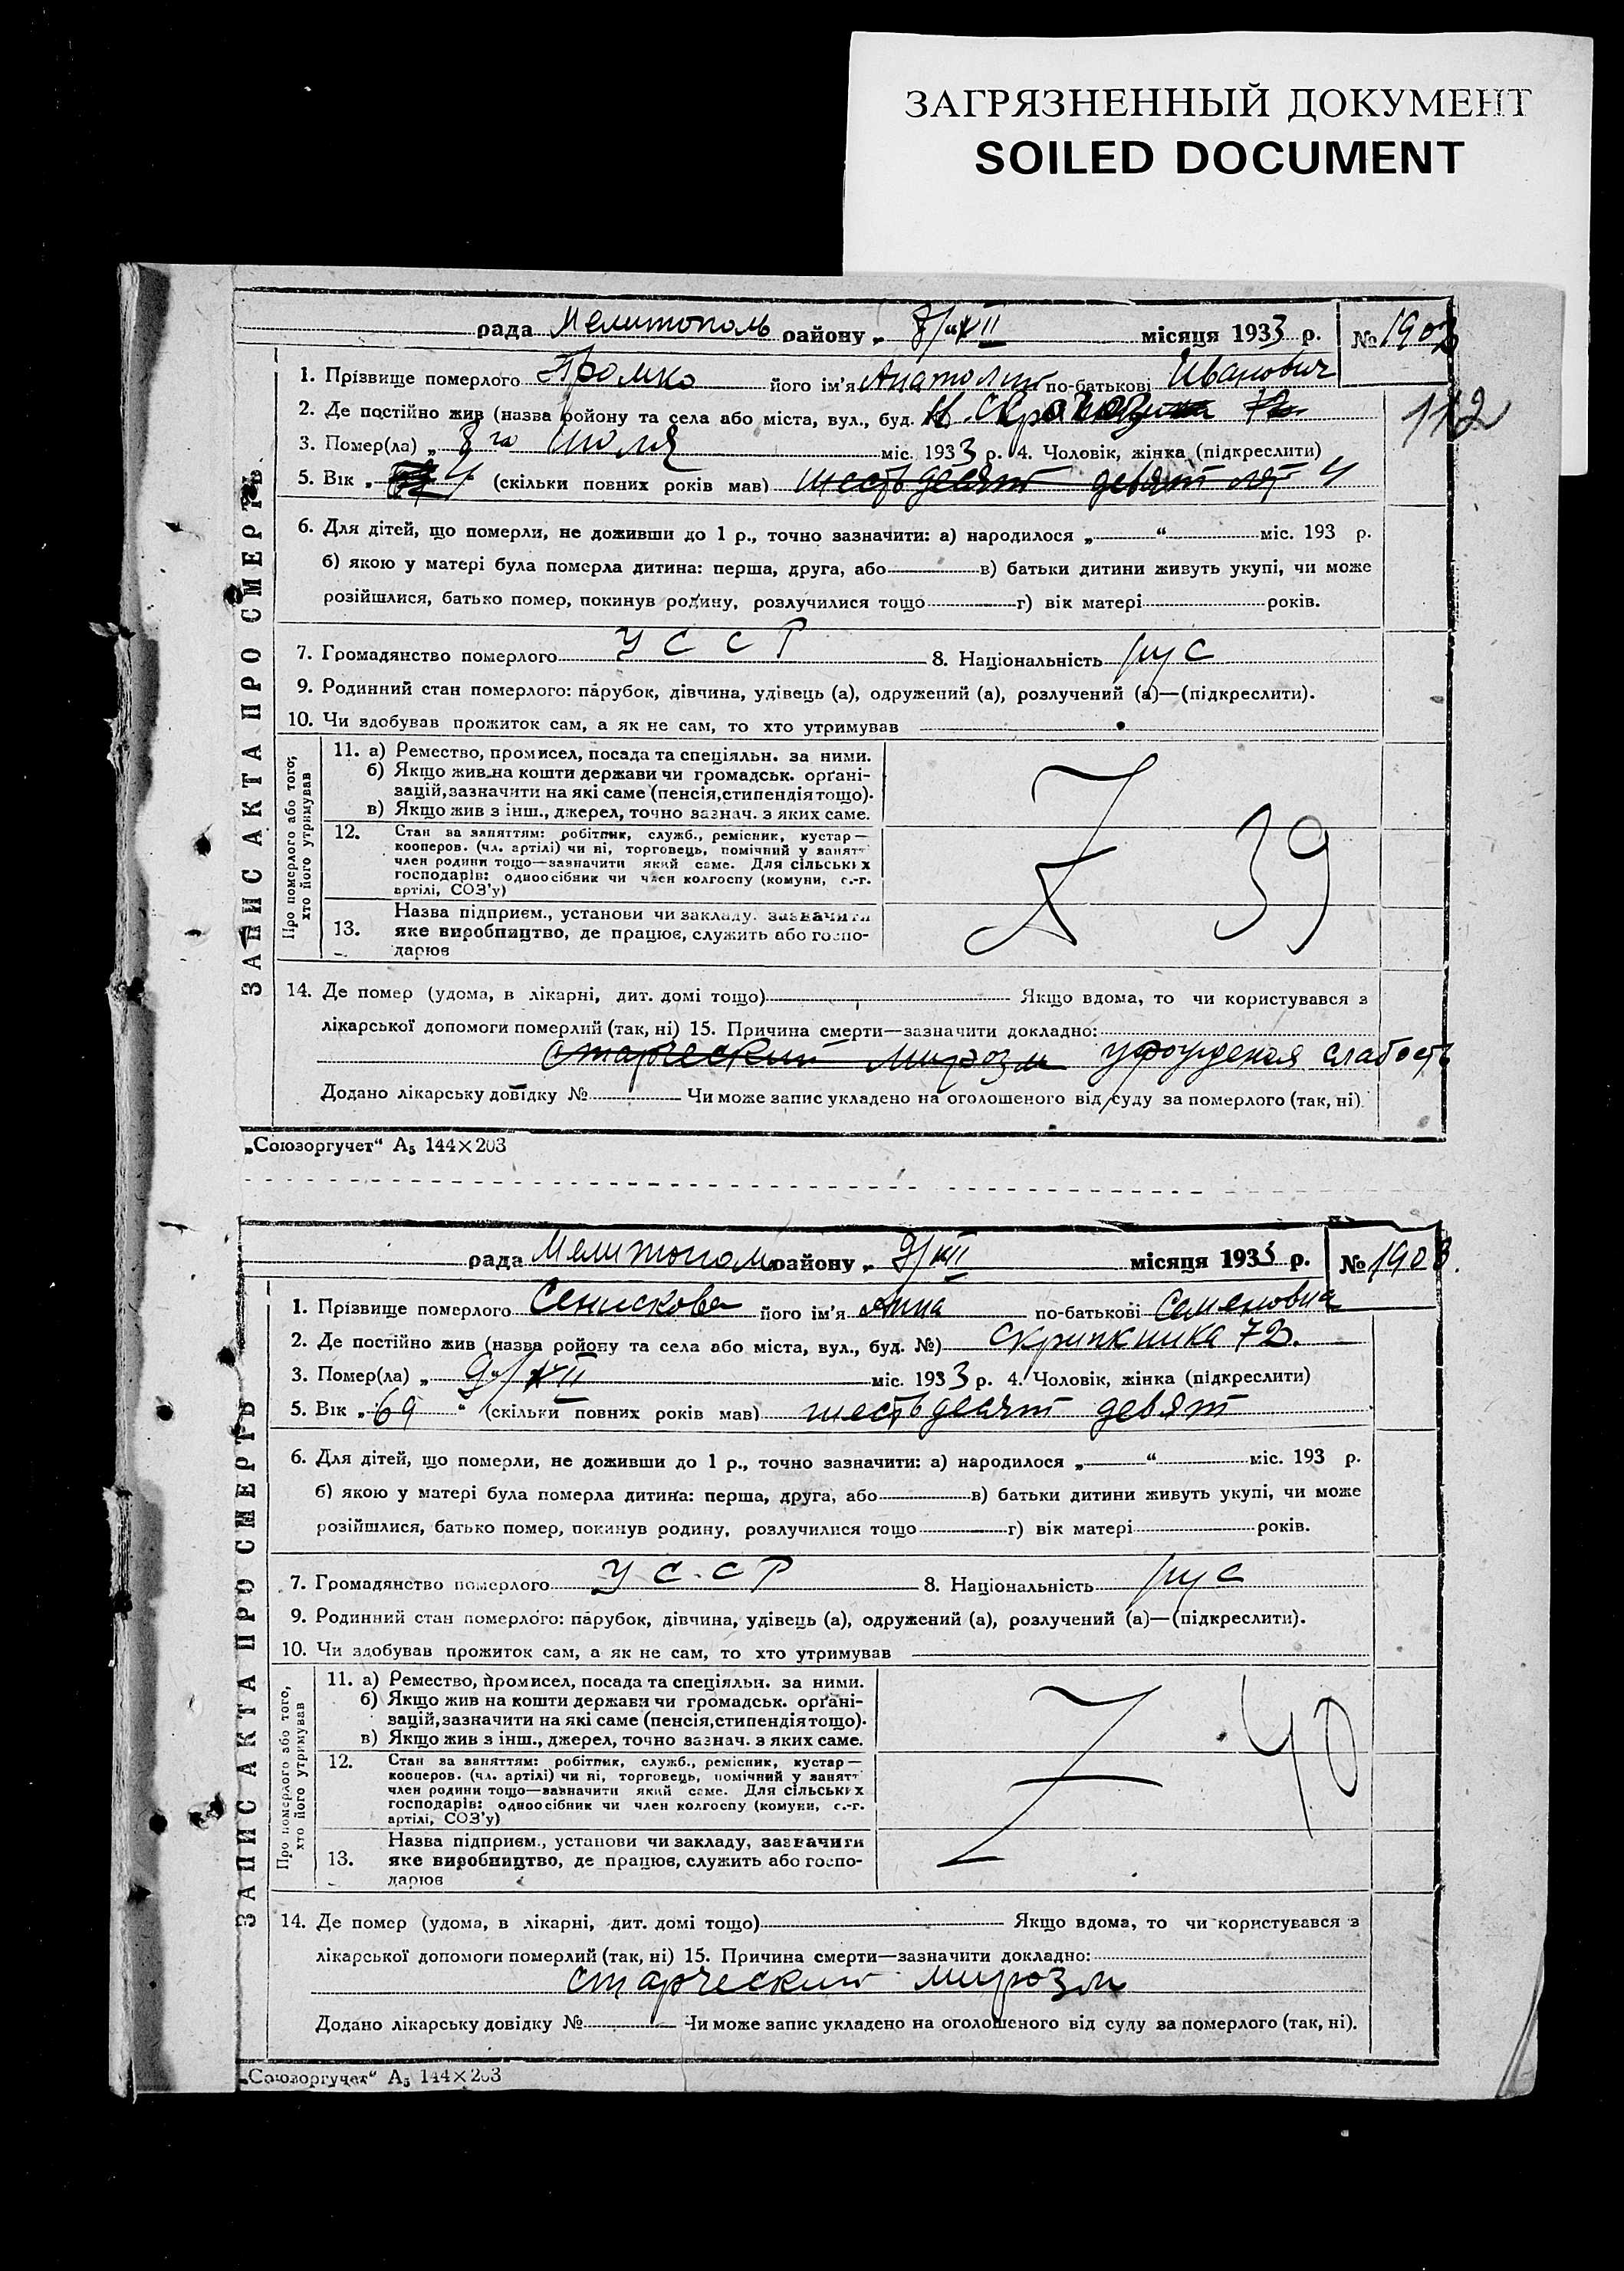 ЗАГРЯЗНЕННЫЙ ДОКУМЕНТ
SOILED DOCUMENT
ЗАПИС АКТА ПРО СМЕРТЬ
рада Мелитополь району „ 8/VII місяця 1933 р. № 1902
1. Прізвище померлого Громко його ім'я Анатолий по-батькові Иванович
112
2. Де постійно жив (назва ройону та села або міста, вул., буд. №)
3. Помер(ла) „ 8го июля міс. 1933 р. 4. Чоловік, жінка (підкреслити)
5. Вік „ “ (скільки повних років мав) шестьдесят девят лет ч
6. Для дітей, що померли, не доживши до 1 р., точно зазначити: а) народилося „ “ міс. 193 р.
б) якою у матері була померла дитина: перша, друга, або в) батьки дитини живуть укупі, чи може
розійшлися, батько помер, покинув родину, розлучилися тощо г) вік матері років.
7. Громадянство померлого УССР 8. Національність рус
9. Родинний стан померлого: парубок, дівчина, удівець (а), одружений (а), розлучений (а)—(підкреслити).
10. Чи здобував прожиток сам, а як не сам, то хто утримував
Про померлого або того, хто його утримував
11. а) Ремество, промисел, посада та спеціяльн. за ними.
б) Якщо жив на кошти держави чи громадськ. орґані-
зацій, зазначити на які саме (пенсія, стипендія тощо).
в) Якщо жив з інш., джерел, точно зазнач. з яких саме.
12. Стан за заняттям: робітник, служб., ремісник, кустар—
кооперов. (чл. артілі) чи ні, торговець, помічний у занятт
член родини тощо—зазначити який саме. Для сільських
господарів: одноосібник чи член колгоспу (комуни, с.-г.
артілі, СОЗ'у)
39
13. Назва підприєм., установи чи закладу, зазначити
яке виробництво, де працює, служить або госпо-
дарює
14. Де помер (удома, в лікарні, дит. домі тощо) Якщо вдома, то чи користувався з
лікарської допомоги померлий (так, ні) 15. Причина смерти—зазначити докладно:
старческий мирозм урожденая слабость
Додано лікарську довідку № Чи може запис укладено на оголошеного від суду за померлого (так, ні).
„Союзоргучет“ А5 144×203
ЗАПИС АКТА ПРО СМЕРТЬ
рада Мелитополь району „ 9/VII місяця 1933 р. № 1903.
1. Прізвище померлого Сенискова його ім'я Анна по-батькові Семеновна
2. Де постійно жив (назва ройону та села або міста, вул., буд. №) Скрипкника 72.
3. Помер(ла) „ 9/VII міс. 1933 р. 4. Чоловік, жінка (підкреслити)
5. Вік „ 69 “ (скільки повних років мав) шестьдесят девят
6. Для дітей, що померли, не доживши до 1 р., точно зазначити: а) народилося „ “ міс. 193 р.
б) якою у матері була померла дитина: перша, друга, або в) батьки дитини живуть укупі, чи може
розійшлися, батько помер, покинув родину, розлучилися тощо г) вік матері років.
7. Громадянство померлого УССР 8. Національність рус
9. Родинний стан померлого: парубок, дівчина, удівець (а), одружений (а), розлучений (а)—(підкреслити).
10. Чи здобував прожиток сам, а як не сам, то хто утримував
Про померлого або того, хто його утримував
11. а) Ремество, промисел, посада та спеціяльн. за ними.
б) Якщо жив на кошти держави чи громадськ. орґані-
зацій, зазначити на які саме (пенсія, стипендія тощо).
в) Якщо жив з інш., джерел, точно зазнач. з яких саме.
12. Стан за заняттям: робітник, служб., ремісник, кустар—
кооперов. (чл. артілі) чи ні, торговець, помічний у занятт
член родини тощо—зазначити який саме. Для сільських
господарів: одноосібник чи член колгоспу (комуни, с.-г.
артілі, СОЗ'у)
40
13. Назва підприєм., установи чи закладу, зазначити
яке виробництво, де працює, служить або госпо-
дарює
14. Де помер (удома, в лікарні, дит. домі тощо) Якщо вдома, то чи користувався з
лікарської допомоги померлий (так, ні) 15. Причина смерти—зазначити докладно:
старческий мирозм
Додано лікарську довідку № Чи може запис укладено на оголошеного від суду за померлого (так, ні).
„Союзоргучет“ А5 144×203